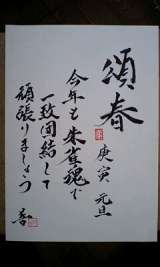 頌春
庚寅 元旦
今年も朱雀魂で
一致団結して
頑張りましょう